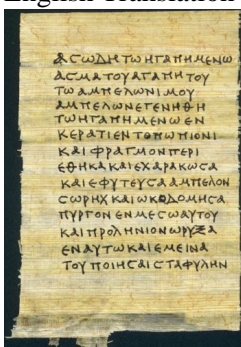 English Translation
ΑϹΩΔΗΤΩΗΓΑΠΗΜΕΝΩ
ΑϹΜΑΤΟΥΑΓΑΠΗΤΟΥ
ΤΩΑΜΠΕΛΩΝΙΜΟΥ
ΑΜΠΕΛΩΝΕΓΕΝΗΘΗ
ΤΩΗΓΑΠΗΜΕΝΩΕΝ
ΚΕΡΑΤΙΕΝΤΟΠΩΠΙΟΝΙ
ΚΑΙΦΡΑΓΜΟΝΠΕΡΙ
ΕΘΗΚΑΚΑΙΕΧΑΡΑΚΩϹΑ
ΚΑΙΕΦΥΤΕΥϹΑΑΜΠΕΛΟΝ
ϹΩΡΗΧΚΑΙΩΚΟΔΟΜΗϹΑ
ΠΥΡΓΟΝΕΝΜΕϹΩΑΥΤΟΥ
ΚΑΙΠΡΟΛΗΝΙΟΝΩΡΥΞΑ
ΕΝΑΥΤΩΚΑΙΕΜΕΙΝΑ
ΤΟΥΠΟΙΗϹΑΙϹΤΑΦΥΛΗΝ